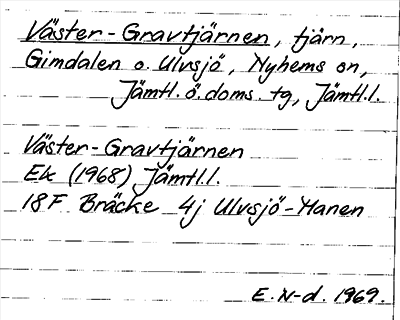 Väster-Gravtjärnen, tjärn,
Gimdalen o. Ulvsjö, Nyhems sn,
Jämtl. ö. doms. tg, Jämtl. l.
Väster-Gravtjärnen
Ek (1968) Jämtl. l.
18F Bräcke 4j Ulvsjö-Hanen
E. N-d. 1969.